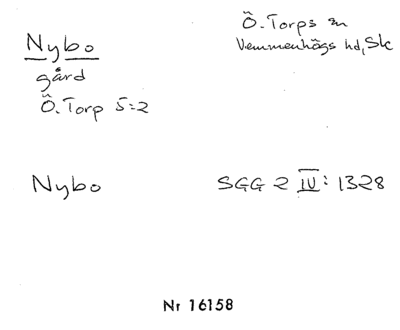 Nybo
gård
Ö. Torp 5:2
Ö. Torps sn
Vemmenhögs hd, Sk
Nybo
SGG 2 IV: 1328
Nr 16158